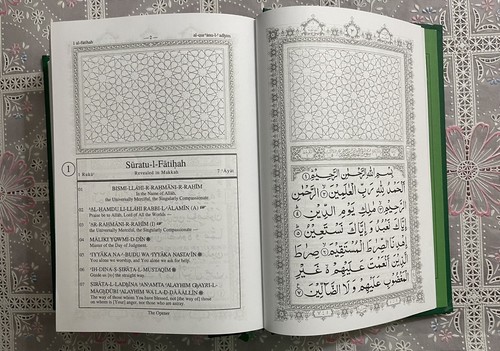 1 al-fātiḥah
— 2 —
Sūratu-l-Fātiḥah
1
1 Rukū‘
Revealed in Makkah
7 ‘Āyāt
01 BISMI-LLĀHI-R-RAḤMĀNI-R-RAḤĪM
In the Name of Allah,
the Universally Merciful, the Singularly Compassionate.
02 'AL-ḤAMDU LI-LLĀHI RABBI-L-‘ĀLAMĪN (A)
Praise be to Allah, Lord of All the Worlds —
03 'AR-RAḤMĀNI-R-RAḤĪM (I)
the Universally Merciful, the Singularly Compassionate
04 MĀLIKI YAWMI-D-DĪN
Master of the Day of Judgment.
05 'IYYĀKA NA‘BUDU WA 'IYYĀKA NASTA‘ĪN
You alone we worship, and You alone we ask for help.
06 'IHDINA-Ṣ-ṢIRĀṬA-L-MUSTAQĪM
Guide us [to] the straight way.
07 ṢIRĀṬA-L-LADHĪNA 'AN‘AMTA ‘ALAYHIM GHAYRI-L-
MAGHḌŪBI ‘ALAYHIM WA LA-Ḍ-ḌĀĀĀLLĪN
The way of those whom You have blessed, not [the way of] those
on whom is [Your] anger, nor those who are astray.
The Opener
بِسْمِ اللَّهِ الرَّحْمَٰنِ الرَّحِيمِ ١
الْحَمْدُ لِلَّهِ رَبِّ الْعَالَمِينَ ٢ الرَّحْمَٰنِ
الرَّحِيمِ ٣ مَالِكِ يَوْمِ الدِّينِ ٤
إِيَّاكَ نَعْبُدُ وَإِيَّاكَ نَسْتَعِينُ ٥
اهْدِنَا الصِّرَاطَ الْمُسْتَقِيمَ ٦ صِرَاطَ
الَّذِينَ أَنْعَمْتَ عَلَيْهِمْ غَيْرِ
الْمَغْضُوبِ عَلَيْهِمْ وَلَا الضَّالِّينَ ٧